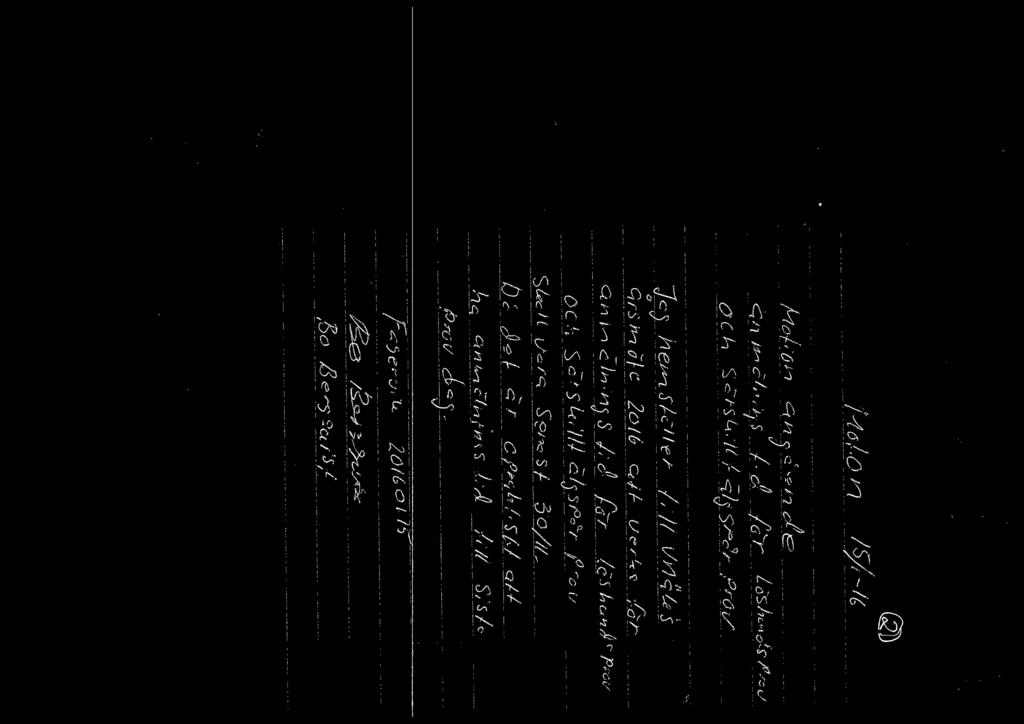 ②
Motion 15/1-16
Motion angående
anmälnings tid för Löshundsprov
och särskilt älgspår prov
Jag hemställer till
årsmöte 2016 att verka för
anmälnings tid för löshundsprov
och särskilt älgspår prov
skall vara senast 30/11.
Då det är opraktiskt att
ha anmälnins tid till sista
prov dag.
Fagervik 20160115
Bo
Bo